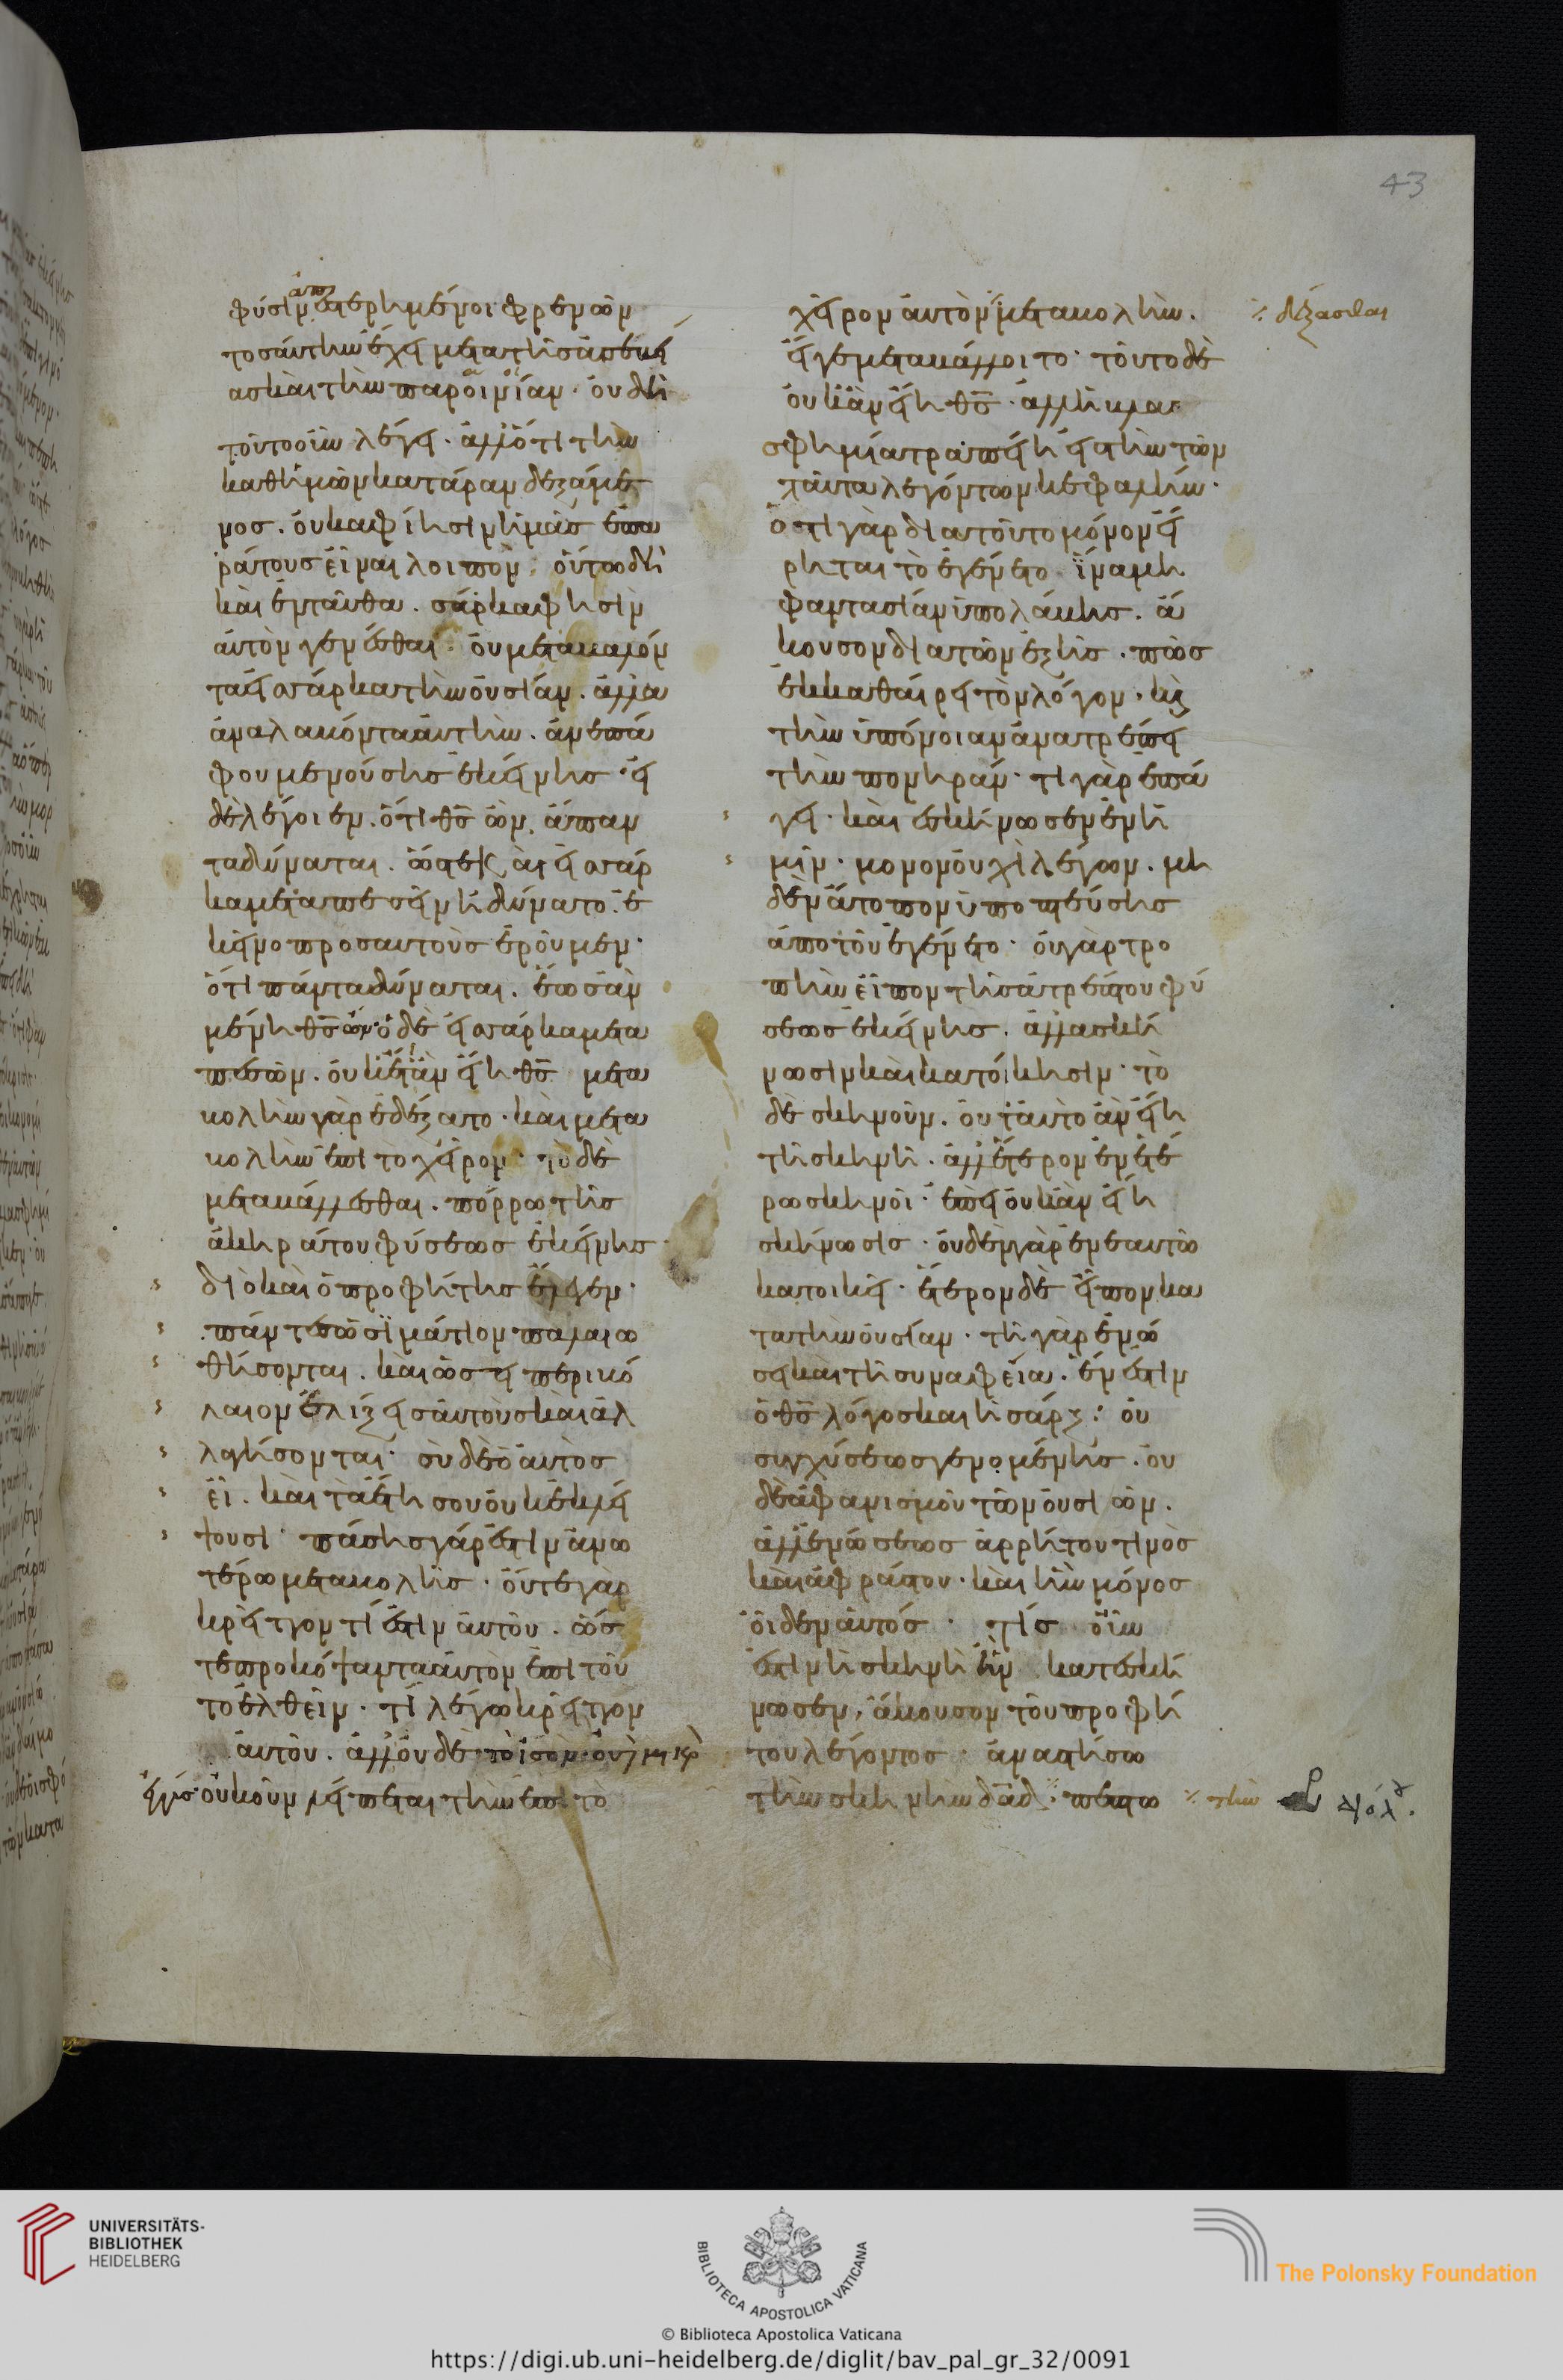 43
φύσιν ἐστερημένοι φρενῶν
τοσαύτην ἔχει μετα τῆς ἀσεβεί
ας καὶ τὴν παροινίαν· οὐ δὴ
τοῦτο οὖν λέγει· ἀλλ᾽ ὅτι τὴν
καθ᾽ ἡμῶν κατάραν δεξάμε
νος. οὐκ ἀφίησιν ἡμᾶς ἐπα
ράτους εἶναι λοιπὸν· οὕτω δὴ
καὶ ἐνταῦθα. σάρκα φησὶν
αὐτὸν γενέσθαι· οὐ μεταβαλόν
τα εἰς σάρκα τὴν οὐσίαν. ἀλλα
ἀναλαβόντα αὐτὴν. ἀνεπά
φου μενούσης ἐκείνης· εἰ
δὲ λέγοιεν. ὅτι θς ὢν. ἅπαν
τα δύναται. ὥστε καὶ εἰς σάρ
κα μεταπεσεῖν ἠδύνατο· ἐ
κεῖνο προς αυτοὺς ἐροῦμεν·
ὅτι πάντα δύναται. ἕως ἂν
μένη θς ὤν· ὁ δὲ εἰς σάρκα μετα
πεσὼν. οὐκέτι ἂν εἴη θς μετα
βολὴν γὰρ ἐδέξατο· καὶ μετα
βολὴν ἐπι τὸ χεῖρον· τὸ δὲ
μεταβάλλεσθαι. πόρρω τῆς
ἀκηράτου φύσεως ἐκείνης·
διὸ καὶ ὁ προφήτης ἔλεγεν·
πάντες ὡς ἱμάτιον παλαιω
θήσονται. καὶ ὡσεὶ περιβό
λαιον ἑλίξεις αὐτοὺς καὶ ἀλ
λαγήσονται· σὺ δὲ ὁ αὐτὸς
εἶ. καὶ τὰ ἔτη σου οὐκ ἐκλεί
ψουσι· πάσης γάρ ἐστιν ἀνω
τέρω μεταβολῆς· οὔτε γὰρ
κρεῖττον τί ἐστιν αὐτοῦ. ὥσ
τε προκόψαντα αὐτὸν ἐπι τοῦ
το ἐλθεῖν· τί λέγω κρεῖττον
αὐτοῦ. ἀλλ᾽ οὐδὲ τὸ ἴσον· οὐδὲ μικρὸν
ἐγγύς· οὐκοῦν λείπεται τὴν ἐπι τὸ
χεῖρον αὐτὸν μεταβολὴν. ⁒ δέξασθαι
εἴγε μεταβάλλοιτο· τοῦτο δὲ
οὐκ ἂν εἴη θς. ἀλλ᾽ ἡ βλασ
φημία τράποιη εἰς τὴν τῶν
ταῦτα λεγόντων κεφαλήν·
ὅτι γὰρ διατοῦτο μόνον εἴ
ρηται τὸ ἐγένετο· ἵνα μὴ
φαντασίαν ὑπολάβης. ἄ
κουσον δια τῶν ἑξῆς· πῶς
ἐκκαθαίρει τὸν λόγον· καὶ
τὴν ὑπόνοιαν ἀνατρέπει
τὴν πονηράν· τί γὰρ ἐπά
γει· καὶ ἐσκήνωσεν ἐν ἡ
μῖν· μονονουχὶ λέγων. μη
δὲν ἄτοπον ὑποπτεύσης
ἀπο τοῦ ἐγένετο· οὐ γὰρ τρο
πὴν εἶπον τῆς ἀτρέπτου φύ
σεως ἐκείνης. ἀλλα σκή
νωσιν καὶ κατοίκησιν· τὸ
δὲ σκηνοῦν. οὐ ταὐτὸ ἂν εἴη
τῆ σκηνῆ. ἀλλ᾽ ἕτερον ἐν ἑτέ
ρω σκηνοῖ· ἐπεὶ οὐκ ἂν εἴη
σκήνωσις· οὐδὲν γὰρ ἐν ἑαυτῶ
κατοικεῖ· ἕτερον δὲ εἶπον κα
τα τὴν οὐσίαν· τῆ γὰρ ἑνώ
σει καὶ τῆ συναφεία· ἕν ἐστιν
ὁ θς λόγος καὶ ἡ σάρξ· οὐ
συγχύσεως γενομένης· οὐ
δὲ ἀφανισμοῦ τῶν οὐσιῶν.
ἀλλ᾽ ἑνώσεως ἀρρήτου τινὸς
καὶ ἀφράστου· καὶ ἣν μόνος
οἶδεν αὐτός· τίς οὖν
ἐστιν ἡ σκηνὴ ἣν κατεσκή
νωσεν, ἄκουσον τοῦ προφή
του λέγοντος· ἀναστήσω
τὴν σκηνὴν δαδ· πεπτω ⁒ τὴν